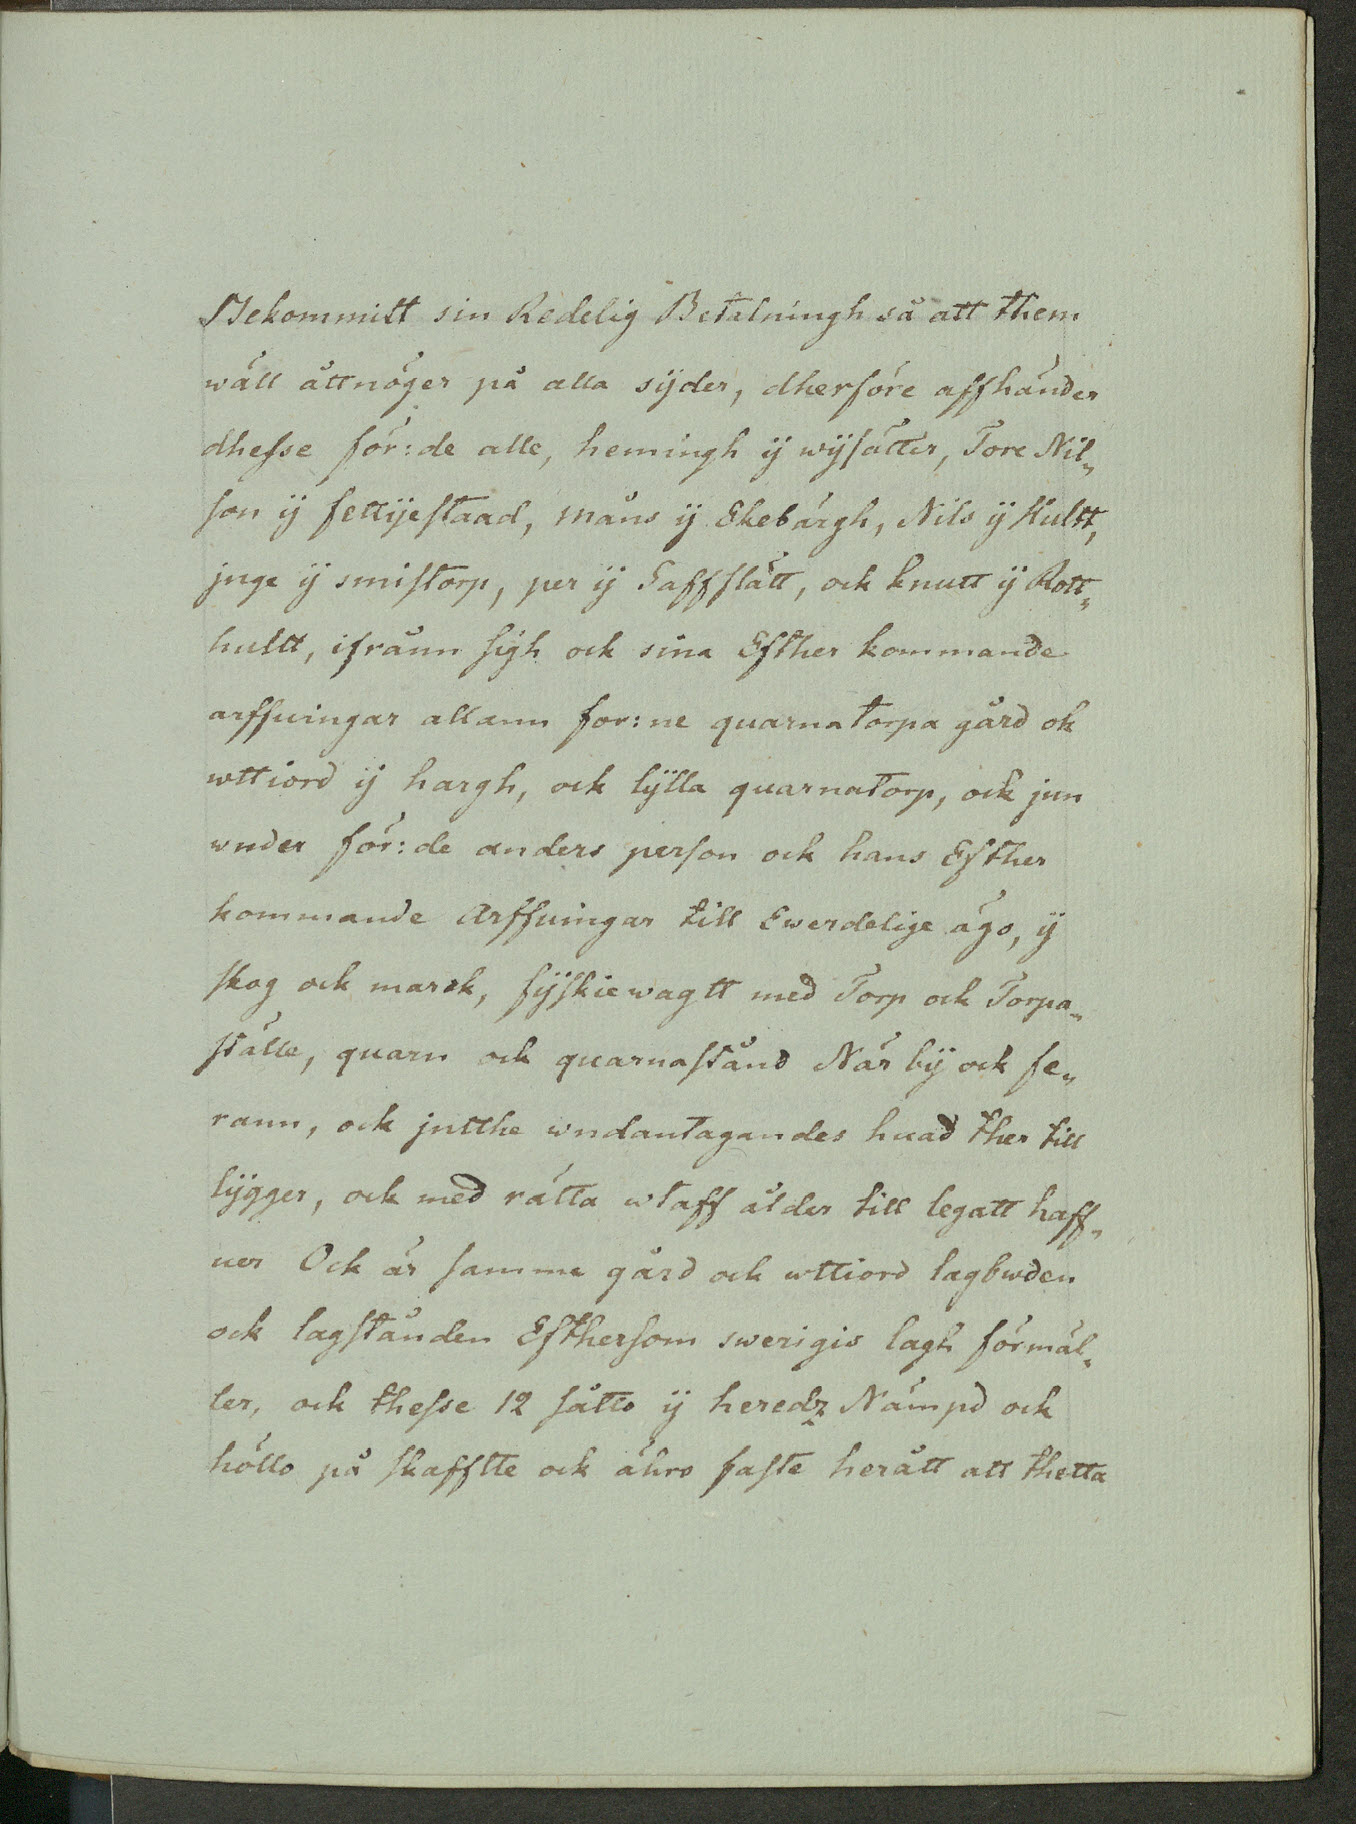 Bekommitt sin Redelig Betalningh så att them
wäll åttnöger på alla sÿder, dherföre affhånder
dhesse för:de alle, hemingh ÿ wÿsätter, Tore Nil„
son ÿ fettijestaad, måns ÿ Ekebärgh, Nils ÿ Hultt,
jnge ÿ smistorp, per ÿ Saffslätt, ock knutt ÿ Rott„
hultt, ifrånn sigh ock sina Effther kommande
arffuingar allann for:ne quarnatorpa gård ok
wttiord ÿ hargh, ock lÿlla quarnatorp, ock jnn
wnder för:de anders person ock hans Effther
kommande Arffuingar till Ewerdelige ägo, ÿ
skog ock marck, fÿskiewagtt med Torp ock Torpa„
ställe, quarn ock quarnastånd När bÿ ock fe„
rann, ock jntthe wndantagandes huad ther till
lÿgger, ock med rätta wtaff ålder till legatt haff„
uer Ock är samma gård ock wttiord lagbwden
ock lagstånden Effthersom swerigis lagh förmäl„
ler, ock thesse 12 såtto ÿ heredz Nämpd ock
höllo på skafftte ock ähro faste herått att thetta